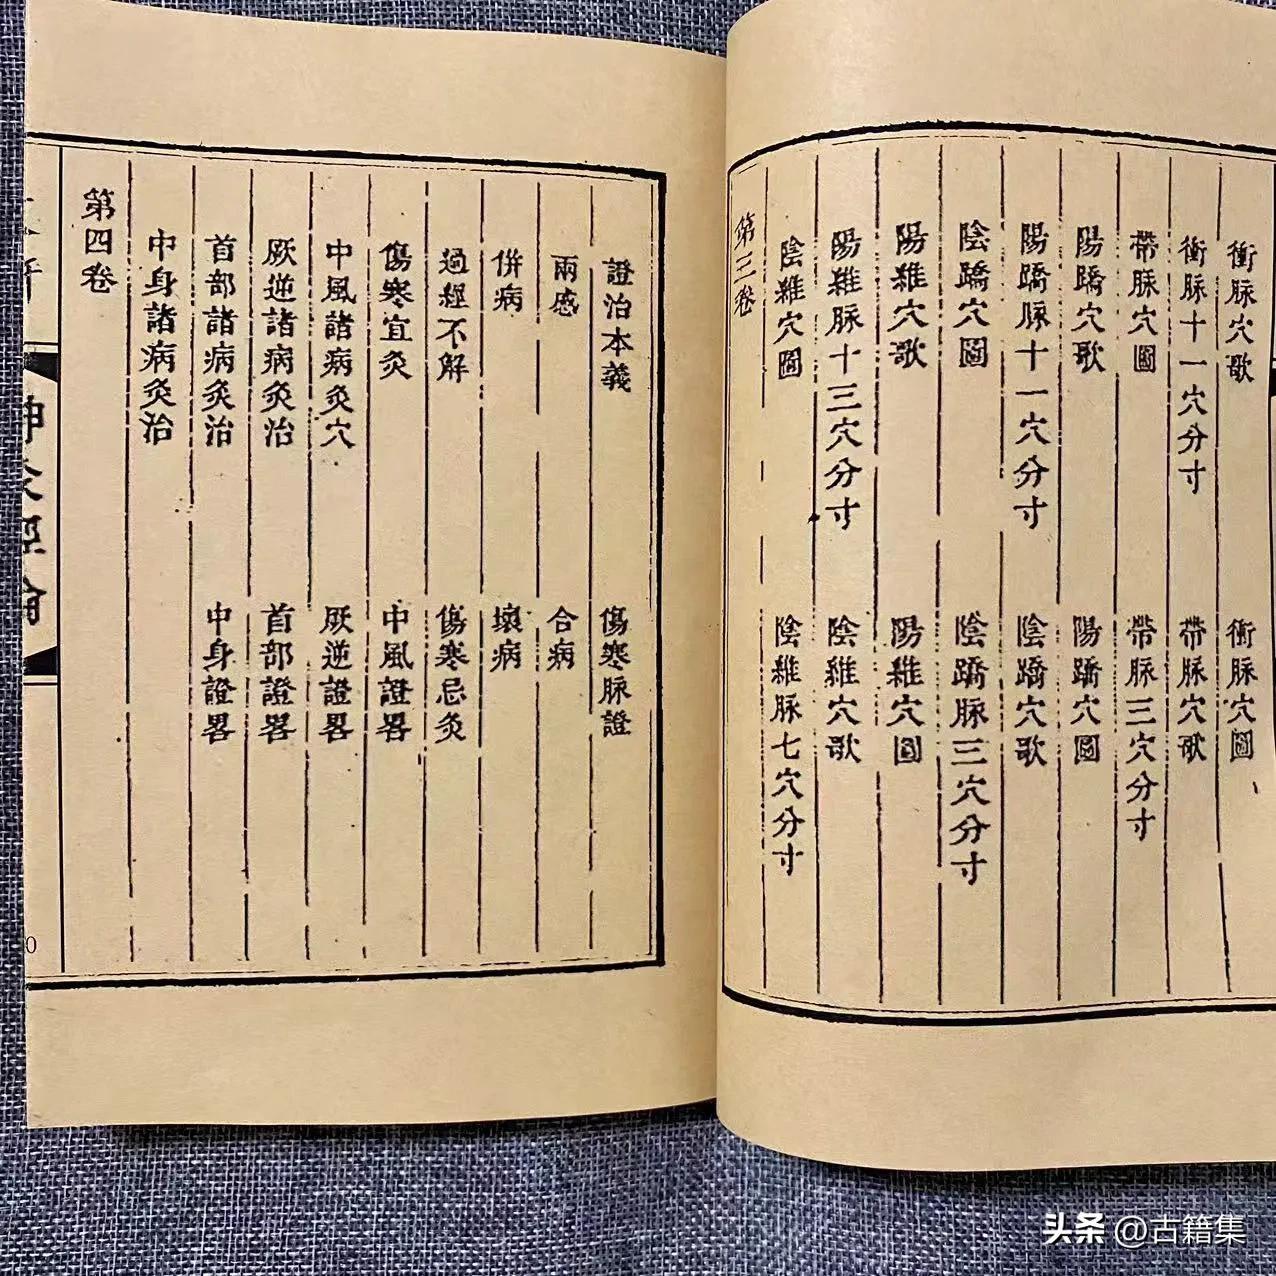 衝脉穴歌 衝脉穴圖
衝脉十一穴分寸 帶脉穴歌
帶脉穴圖 帶脉三穴分寸
陽蹻穴歌 陽蹻穴圖
陽蹻脉十一穴分寸 陰蹻穴歌
陰蹻穴圖 陰蹻脉三穴分寸
陽維穴歌 陽維穴圖
陽維脉十三穴分寸 陰維穴歌
陰維穴圖 陰維脉七穴分寸
第三卷
證治本義 傷寒脉證
兩感 合病
併病 壞病
過經不解 傷寒忌灸
傷寒宜灸 中風證畧
中風諸病灸穴 厥逆證畧
厥逆諸病灸治 首部證畧
首部諸病灸治 中身證畧
中身諸病灸治
第四卷
神灸經綸
0
头条 @古籍集